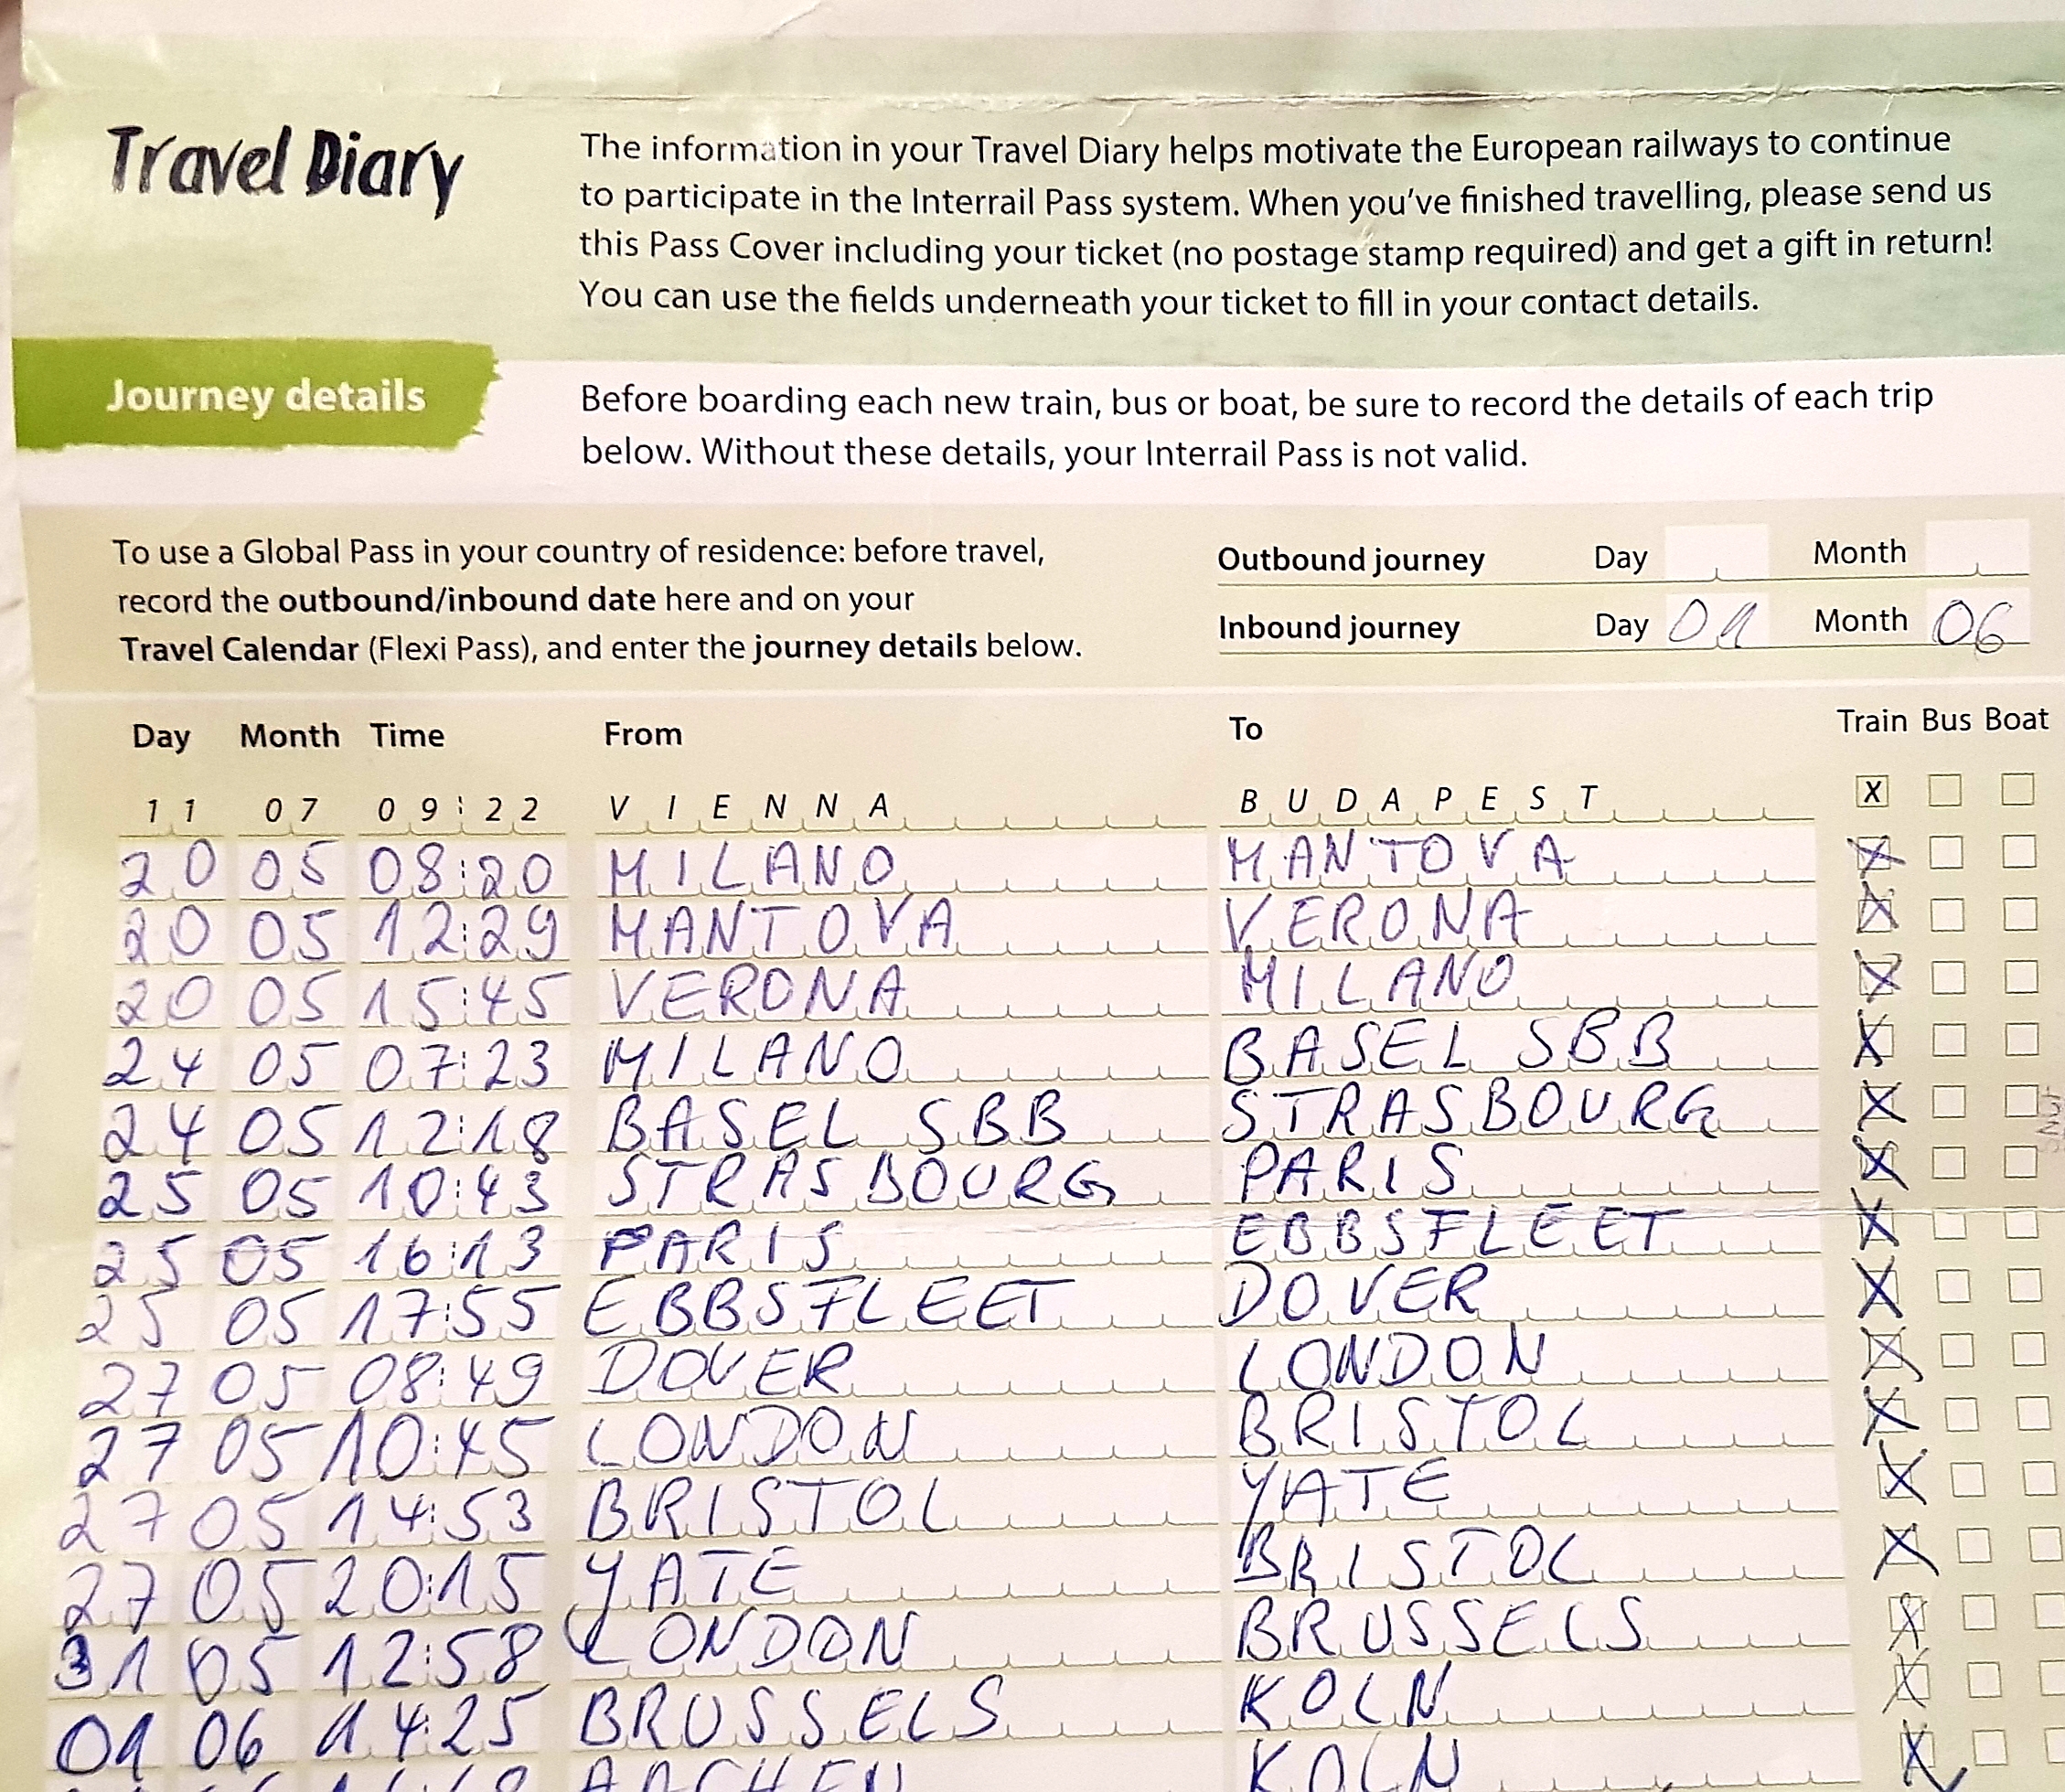 Travel Diary
The information in your Travel Diary helps motivate the European railways to continue
to participate in the Interrail Pass system. When you've finished travelling, please send us
this Pass Cover including your ticket (no postage stamp required) and get a gift in return!
You can use the fields underneath your ticket to fill in your contact details.
Journey details
Before boarding each new train, bus or boat, be sure to record the details of each trip
below. Without these details, your Interrail Pass is not valid.
To use a Global Pass in your country of residence: before travel,
record the outbound/inbound date here and on your
Travel Calendar (Flexi Pass), and enter the journey details below.
Outbound journey Day Month
Inbound journey Day 01 Month 06
Day Month Time From To Train Bus Boat
11 07 09:22 VIENNA BUDAPEST X
20 05 08:20 MILANO MANTOVA X
20 05 12:29 MANTOVA VERONA X
20 05 15:45 VERONA MILANO X
24 05 07:23 MILANO BASEL SBB X
24 05 12:18 BASEL SBB STRASBOURG X
25 05 10:43 STRASBOURG PARIS X
25 05 16:13 PARIS EBBSFLEET X
25 05 17:55 EBBSFLEET DOVER X
27 05 08:49 DOVER LONDON X
27 05 10:45 LONDON BRISTOL X
27 05 14:53 BRISTOL YATE X
27 05 20:15 YATE BRISTOL X
31 05 12:58 LONDON BRUSSELS X
01 06 14:25 BRUSSELS KOLN X
AACHEN KOLN X